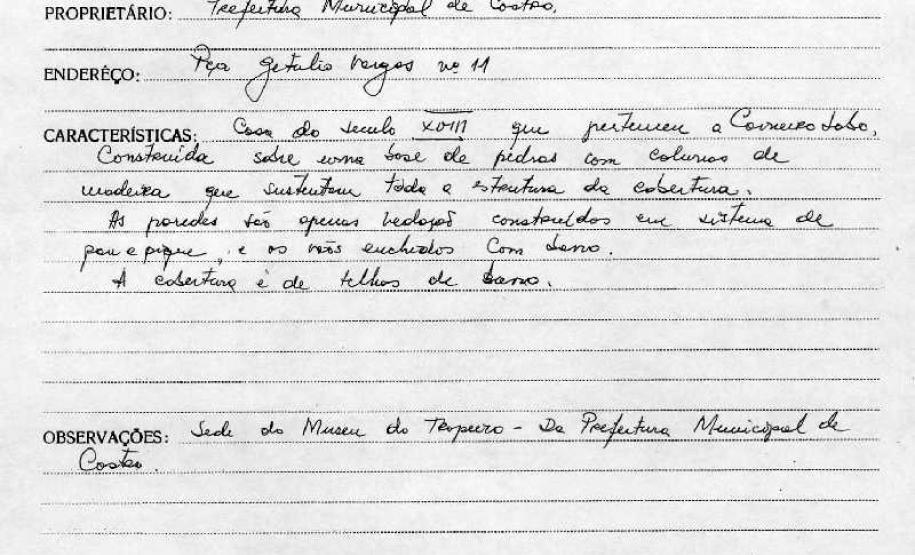 PROPRIETÁRIO: Prefeitura Municipal de Castro.
ENDERÊÇO: Pça Getulio Vargas nº 11
CARACTERÍSTICAS: Casa do seculo XVIII que pertenceu a Carneiro Lobo,
Construida sobre uma base de pedras com colunas de
madeira que sustentam toda a estrutura da cobertura.
As paredes são apenas vedação construidas em sistema de
pau e pique, e os vãos enchidos com barro.
A cobertura é de telhas de barro.
OBSERVAÇÕES: Sede do Museu do Tropeiro - Da Prefeitura Municipal de
Castro.